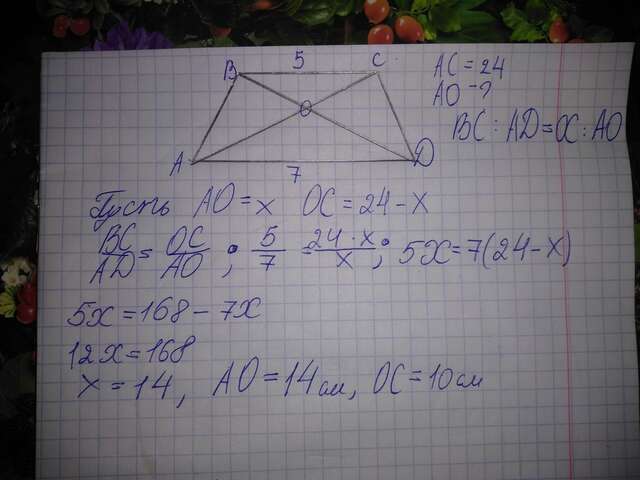 B 5 C
AC = 24
AO - ?
O
BC : AD = OC : AO
A D
7
Пусть AO = x OC = 24 - x
BC/AD = OC/AO ; 5/7 = 24 · x/x ; 5x = 7(24 - x)
5x = 168 - 7x
12x = 168
x = 14, AO = 14 см, OC = 10 см